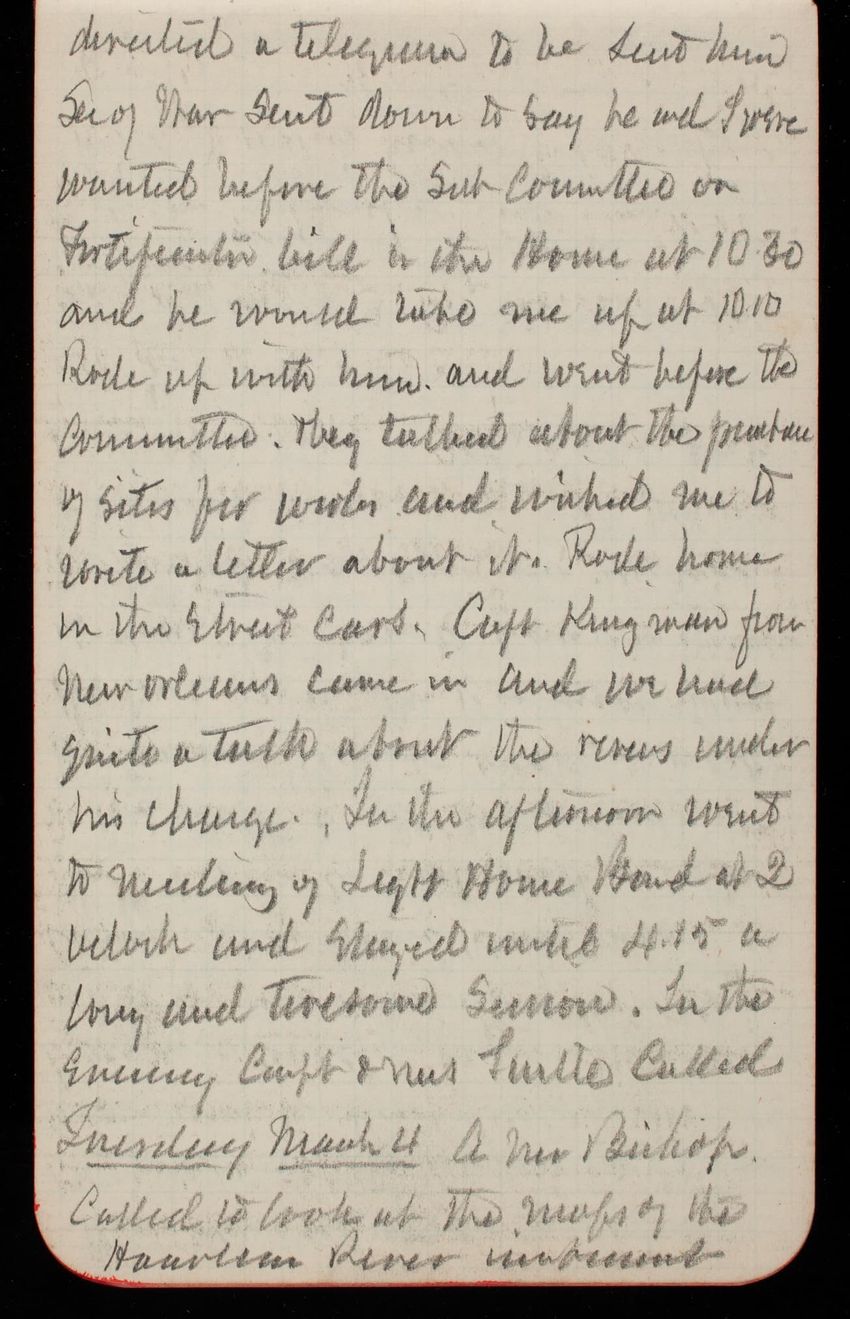 directed a telegram to be sent him
Sec of War sent down to say he and I were
wanted before the Sub Committee on
Fortification bill in the House at 10.30
and he would take me up at 10.10
Rode up with him. and went before the
Committee. They talked about the purchase
of sites for works and wished me to
write a letter about it. Rode home
in the street cars. Capt Kingman from
New Orleans came in and we had
quite a talk about the rivers under
his charge. In the afternoon went
to meeting of Light House Board at 2
oclock and stayed until 4.15 a
long and tiresome session. In the
Evening Capt & Mrs Turtle Called
Tuesday March 4 A Mr Bishop.
Called to look at the maps of the
Haarlem River